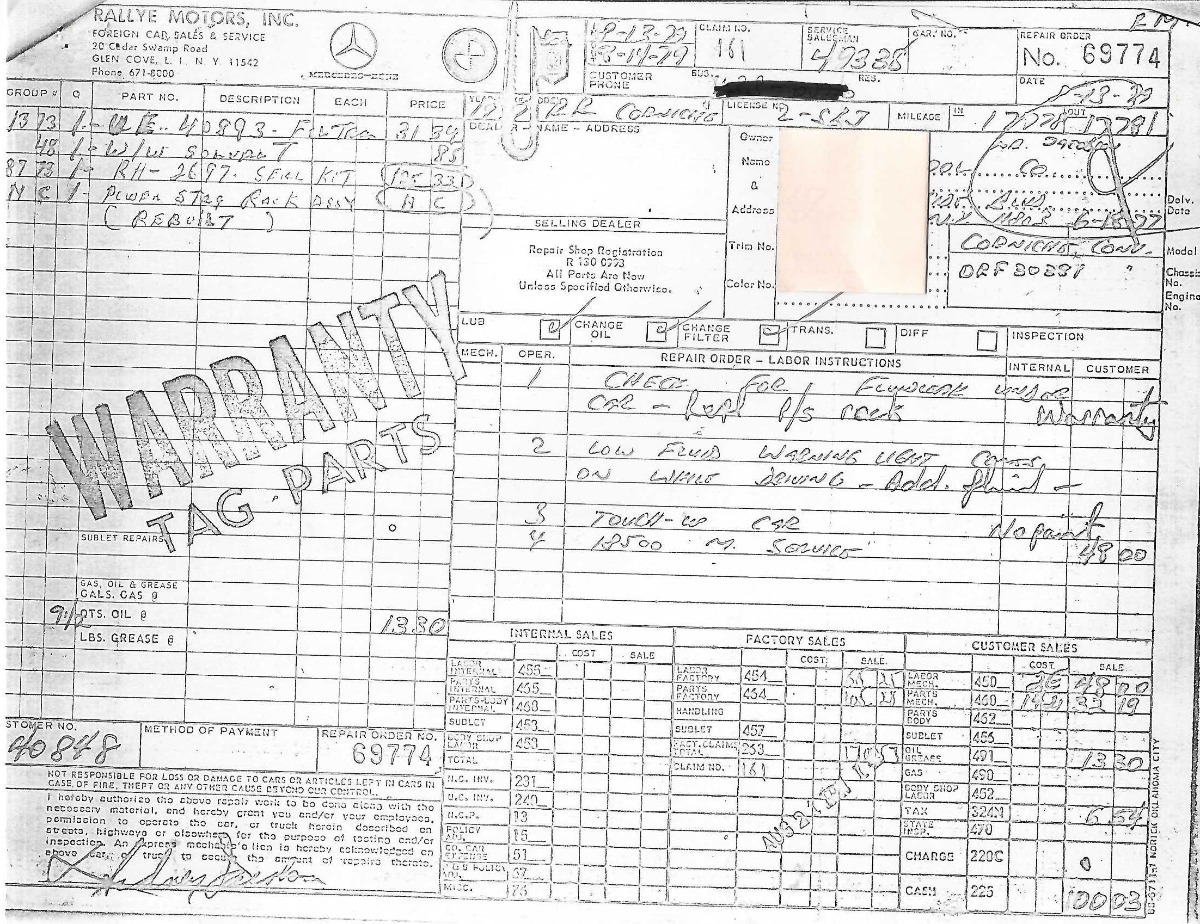 RALLYE MOTORS, INC.
FOREIGN CAR SALES & SERVICE
20 Cedar Swamp Road
GLEN COVE, L. I. N. Y. 11542
Phone 671-8000
MERCEDES-BENZ
CLAIM NO.
161
SERVICE SALESMAN
CAR. NO.
REPAIR ORDER
No. 69774
CUSTOMER PHONE
BUS.
RES.
DATE
GROUP # Q PART NO. DESCRIPTION EACH PRICE
1373 1- UE-40893- 31 34
48 1- W/W 85
8773 1- RH-2697. SEAL KIT 105 33
N C 1- POWER STRG RACK ASSY N C
(REBUILT)
RR CORNICHE
LICENSE NO
MILEAGE IN 17778 OUT 17781
DEALER - NAME - ADDRESS
Owner
Name
&
Address
Trim No.
Color No.
Delv. Date
SELLING DEALER
Repair Shop Registration
R 130 0773
All Parts Are New
Unless Specified Otherwise.
CORNICHE CONV.
Model
DRF 30381
Chassis No.
Engine No.
LUB CHANGE OIL CHANGE FILTER TRANS. DIFF INSPECTION
MECH. OPER. REPAIR ORDER - LABOR INSTRUCTIONS INTERNAL CUSTOMER
1 CHECK FOR FLUID LEAK UNDER
CAR - Repl p/s rack Warranty
2 LOW FLUID WARNING LIGHT COMES
ON WHILE DRIVING - Add. fluid -
3 TOUCH-UP CAR No paint
4 18500 M. SERVICE 48 00
WARRANTY
TAG PARTS
SUBLET REPAIRS
GAS, OIL & GREASE
GALS. GAS @
9½ QTS. OIL @ 13 30
LBS. GREASE @
INTERNAL SALES COST SALE
LABOR INTERNAL 455
PARTS INTERNAL 465
PARTS-BODY INTERNAL 468
SUBLET 453
BODY SHOP LABOR 453
TOTAL
N.C. INV. 231
U.C. INV. 240
N.C.P. 13
POLICY ADJ. 15
CO. CAR EXPENSE 51
U & S POLICY ADJ. 37
MISC. 76
FACTORY SALES COST SALE
LABOR FACTORY 454
PARTS FACTORY 464
HANDLING
SUBLET 457
FACT. CLAIMS TOTAL 263
CLAIM NO. 161
CUSTOMER SALES COST SALE
LABOR MECH. 450 48 00
PARTS MECH. 460 32 19
PARTS BODY 462
SUBLET 456
OIL GREASE 491 13 30
GAS 490
BODY SHOP LABOR 452
TAX 324N 6 54
STATE INSP. 470
CHARGE 220C 0
CASH 225 100 03
CUSTOMER NO.
40848
METHOD OF PAYMENT
REPAIR ORDER NO.
69774
NOT RESPONSIBLE FOR LOSS OR DAMAGE TO CARS OR ARTICLES LEFT IN CARS IN
CASE OF FIRE, THEFT OR ANY OTHER CAUSE BEYOND OUR CONTROL.
I hereby authorize the above repair work to be done along with the
necessary material, and hereby grant you and/or your employees,
permission to operate the car, or truck herein described on
streets, highways or elsewhere for the purpose of testing and/or
inspection. An express mechanic's lien is hereby acknowledged on
above car or truck to secure the amount of repairs thereto.
NORICK OKLAHOMA CITY